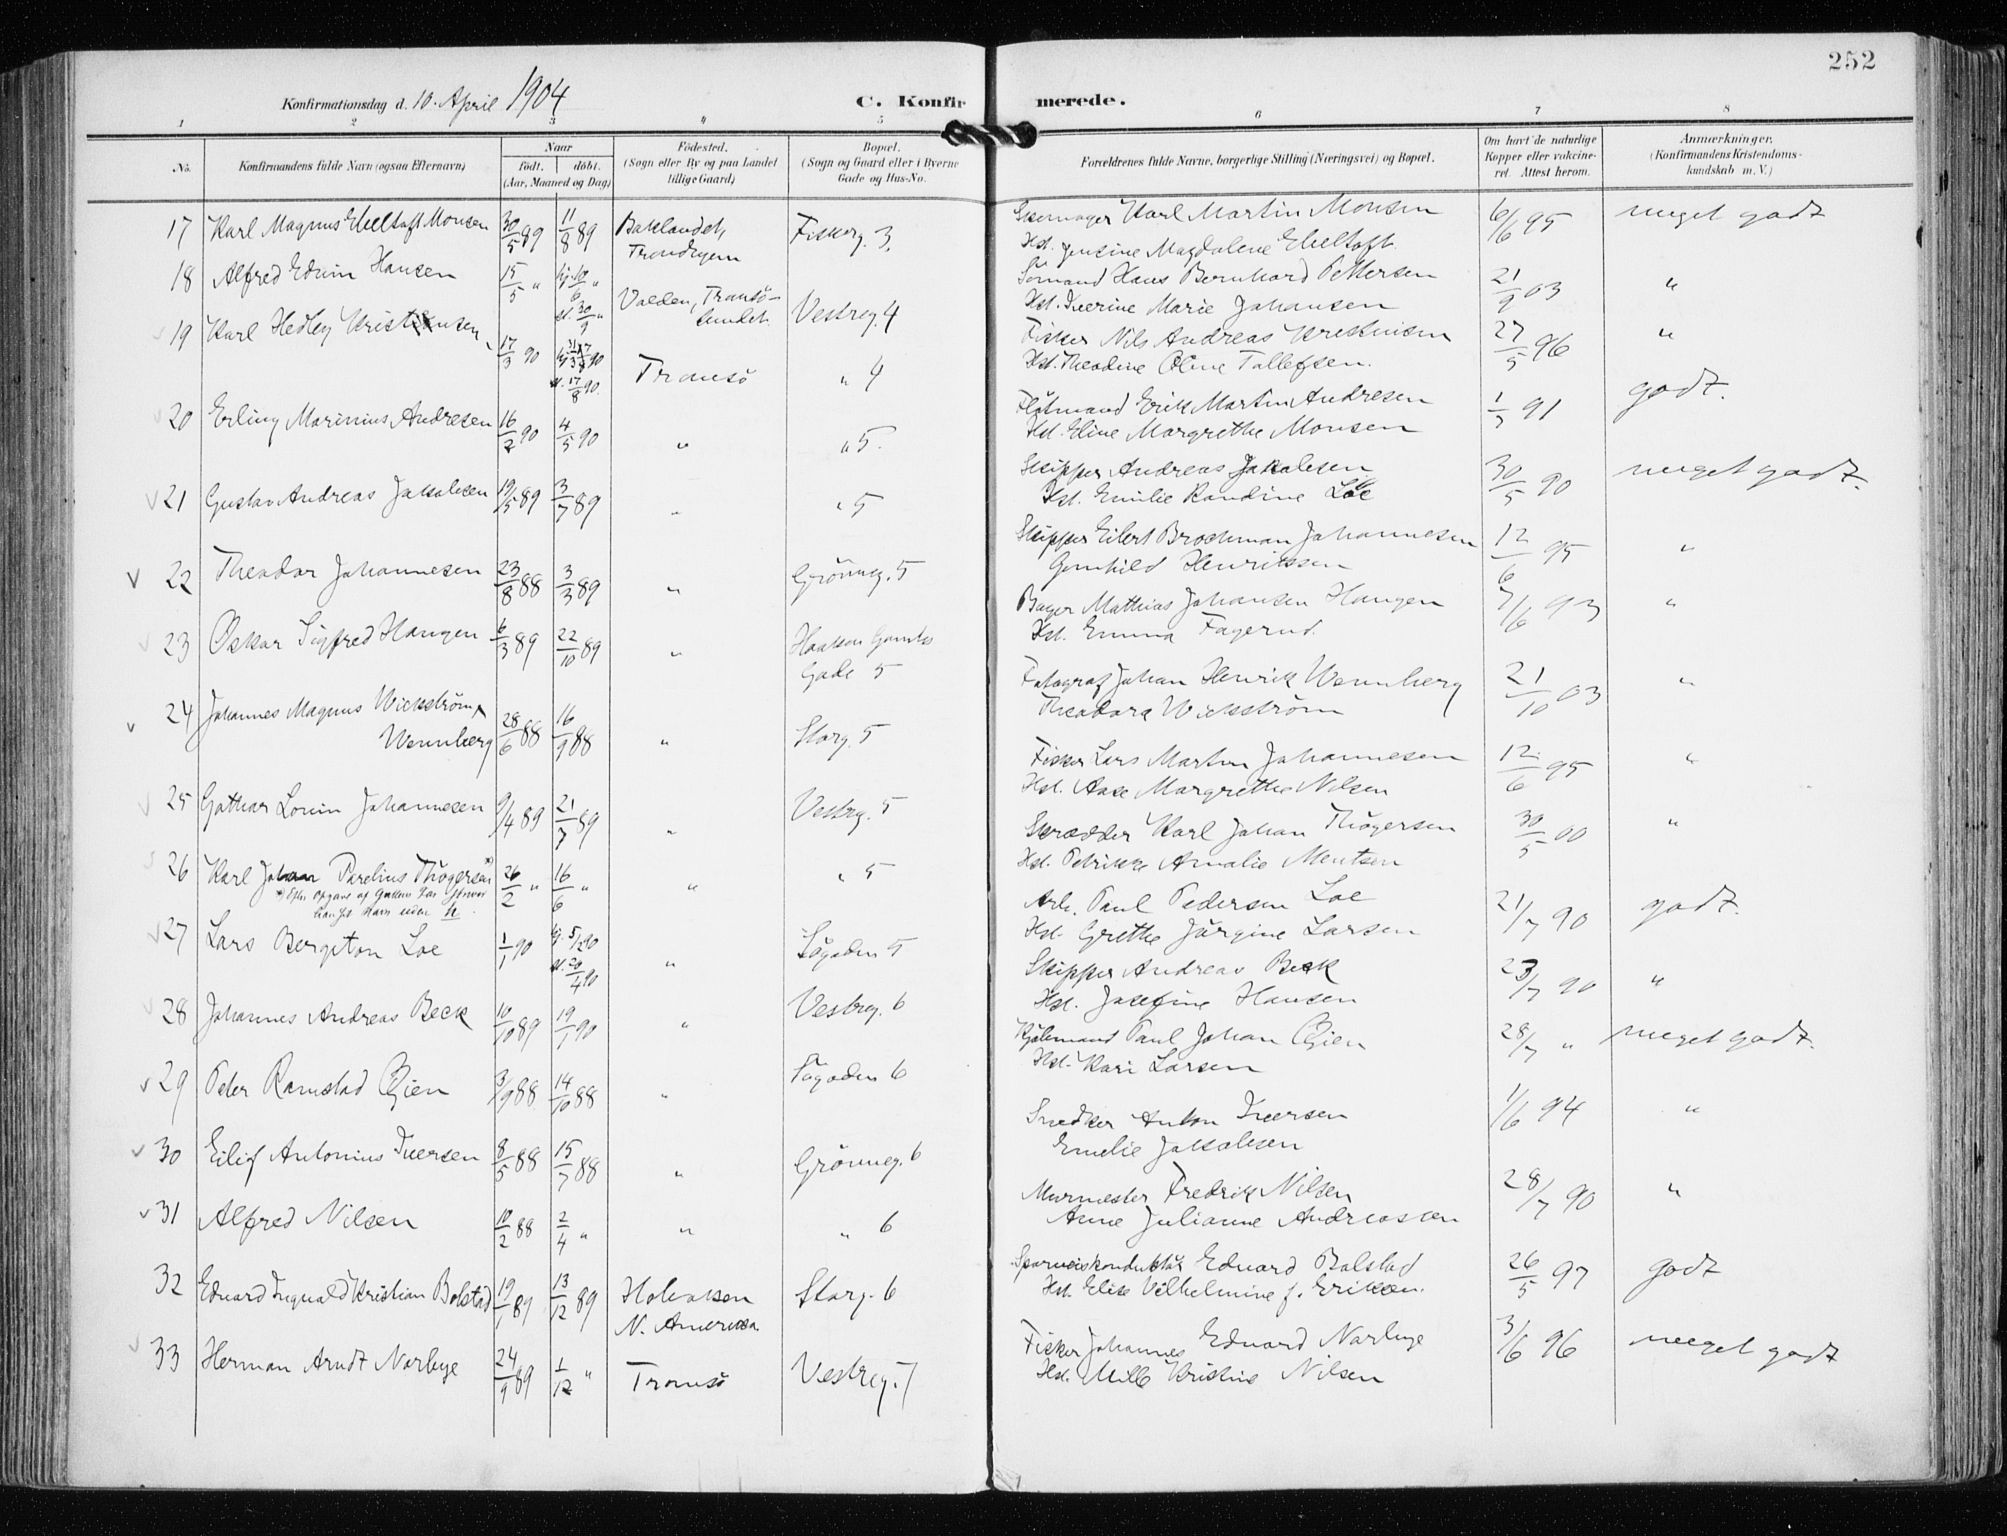 252
Konfirmationsdag d. 10. April 1904 C. Konfirmerede.
1 2 3 4 5 6 7 8
No. Konfirmandens fulde Navn (ogsaa Efternavn) Naar født. døbt. (Aar, Maaned og Dag) Fødested. (Sogn eller By og paa Landet tillige Gaard) Bopæl. (Sogn og Gaard eller i Byerne Gade og Hus-No. Forældrenes fulde Navne, borgerlige Stilling (Næringsvei) og Bopæl. Om havt de naturlige Kopper eller vakcineret. Attest herom. Anmærkninger. (Konfirmandens Kristendomskundskab m. V.)
17 Karl Magnus Ebeltoft Monsen 30/5 89 11/8 89 Baklandet, Trondhjem Fiskerg. 3. Skomager Karl Martin Monsen 6/6 95 meget godt
Hst. Jensine Magdalene Ebeltoft.
18 Alfred Edvin Hansen 15/5 " hj. 10/6 " st. 30/9 " Tromsösundet Vestreg. 4 Sömand Hans Bernhard Pettersen 21/9 03 "
Hst. Iverine Marie Johansen
19 Karl Hedley Kristensen 17/3 90 st. 17/8 90. Tromsö " 4 Fisker Nils Andreas Kristensen 27/5 96 "
Hst. Theodine Oline Tollefsen.
20 Erling Marinius Andresen 16/2 90 4/5 90 " " 5. Erik Martin Andresen 1/7 91 godt.
Hst. Eline Margrethe Monsen
21 Gustav Andreas Jakobsen 19/5 89 3/7 89 " " 5 Skipper Andreas Jakobsen 30/5 90 meget godt.
Hst. Emilie Randine Loe
22 Theodor Johannesen 23/8 88 3/3 89 " Grönneg. 5 Skipper Eilert Brochman Johannesen 12/6 95 "
Gunhild Henriksen
23 Oskar Sigfred Haugen 6/3 89 22/10 89 " Haakon Gamles Gade 5 Bager Mathias Johansen Haugen 7/6 93 "
Hst. Emma Fagerud.
24 Johannes Magnus Wickström Wennberg 28/6 88 16/9 88 " Storg. 5 Fotograf Johan Henrik Wennberg 21/10 03 "
Theodora Wickström
25 Gothar Lovin Johannesen 9/4 89 21/7 89 " Vestreg. 5 Fisker Lars Martin Johannesen 12/6 95 "
Hst. Aase Margrethe Nilsen
26 Karl Johan Parelius Thögersen * 26/2 " 16/6 " " " 5 Skrædder Karl Johan Thögersen 30/5 00 "
Hst. Petrikke Amalie Mentsen
27 Lars Bergiton Loe 1/1 90 hj. 5/2 90 st. 20/4 90 " Sögaden 5 Arb. Paul Pedersen Loe 21/7 90 godt.
Hst. Grethe Jörgine Larsen
28 Johannes Andreas Beck 10/10 89 19/1 90 " Vestreg. 6 Skipper Andreas Beck 23/7 90 "
Hst. Josefine Hansen
29 Peter Ramstad Öien 3/9 88 14/10 88 " Sögaden 6 Paul Johan Öien 28/7 " meget godt.
Hst. Kari Larsen
30 Eilif Antonius Iversen 8/5 88 15/7 88 " Grönneg. 6 Snedker Anton Iversen 1/6 94 "
Emelie Jakobsen
31 Alfred Nilsen 10/2 88 2/4 " " " 6 Murmester Fredrik Nilsen 28/7 90 "
Anne Julianne Andreassen
32 Edvard Ingvald Kristian Bolstad 19/1 89 13/12 89 Hoboken N. Amerika Storg. 6 Sporveiskonduktör Edvard Bolstad 26/5 97 godt
Hst. Elise Vilhelmine f. Eriksen.
33 Herman Arndt Norbye 24/9 89 1/12 " Tromsö Vestreg. 7 Fisker Johannes Edvard Norbye 3/6 96 meget godt
Hst. Milla Kristine Nilsen